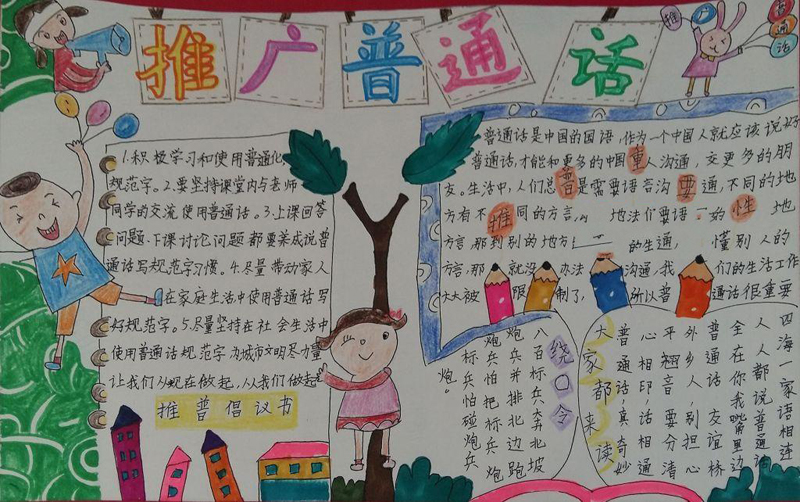 推广普通话
推广
普通话
1.积极学习和使用普通化
规范字。2.要坚持课堂内与老师
同学的交流使用普通话。3.上课回答
问题、下课讨论问题都要养成说普
通话写规范字习惯。4.尽量带动家人
在家庭生活中使用普通话写
好规范字。5.尽量坚持在社会生活中
使用普通话规范字为城市文明尽力量
让我们从现在做起,从我们做起
推普倡议书
普通话是中国的国语,作为一个中国人就应该说好
普通话,才能和更多的中国人沟通,交更多的朋
友。生活中,人们总是需要语言沟通,不同的地
方有不同的方言。
地
方言,那到别的地方
懂别人的
方言,那就没办法沟通,我们的生活工作
大大被限制了,所以普通话很重要
推普重要性
绕口令
八百标兵奔北坡
炮兵并排北边跑
炮兵怕把标兵碰
标兵怕碰炮兵炮。
大家都来读
四海一家语相连
人人都说普通话
全在你我嘴角里边
普通话,友谊桥
外乡人,别担心
平翘音要分清
心相印话相通
普通话,真奇妙